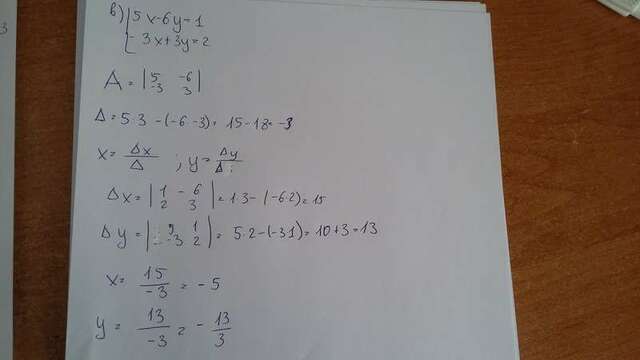 в) { 5x-6y=1
-3x+3y=2
Δ = | 5 -6
-3 3 |
Δ = 5 3 - (-6 -3) = 15-18=-3
x = Δx/Δ ; y = Δy/Δ ;
Δx = | 1 -6
2 3 | = 1 3 - (-6 2) = 15
Δy = | 1
-3 2 | = 5 2 - (-3 1) = 10+3=13
x = 15/-3 = -5
y = 13/-3 = - 13/3
3